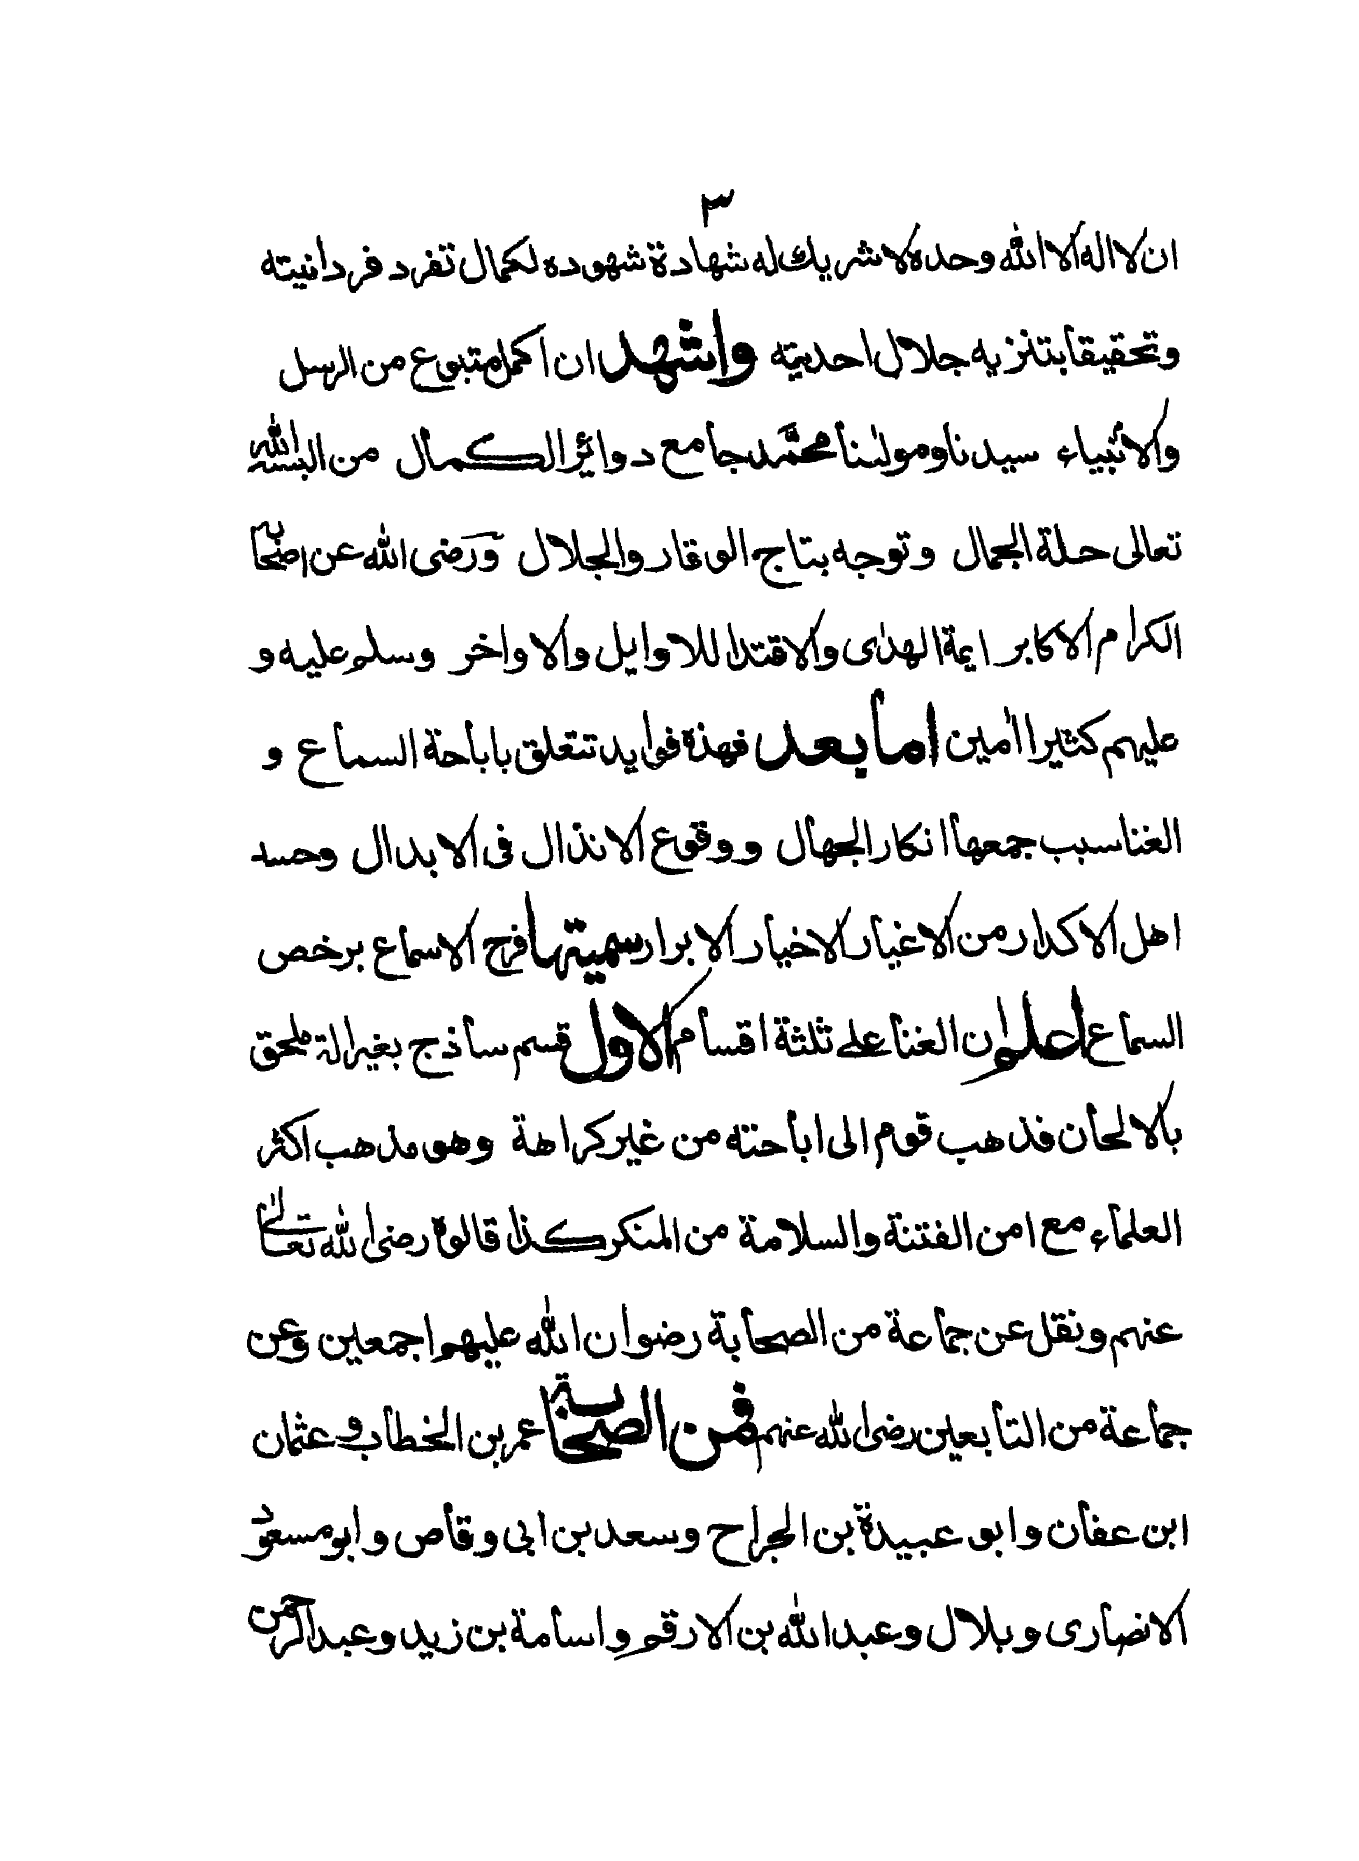 ٣
ان لا اله الا الله وحده لا شريك له شهادة شهوده لكمال تفرد فردانيته
وتحقيقا بتنزيه جلال احديته واشهد ان اكمل متبوع من الرسل
والأنبياء سيدنا ومولىنا محمّد جامع دوائر الكمال من البسه الله
تعالى حلة الجمال وتوجه بتاج الوقار والجلال ورضى الله عن اصحابه
الكرام الاكابر ايمة الهدى والاقتدا للاوايل والاواخر وسلم عليه و
عليهم كثيرا امين اما بعد فهذه فوايد تتعلق باباحة السماع و
الغنا سبب جمعها انكار الجهال ووقوع الانذال فى الابدال وحسد
اهل الاكدار من الاغيار الاخيار الابرار سميتها فرح الاسماع برخص
السماع اعلم ان الغنا على ثلثة اقسام الاول قسم ساذج بغير الة ملحق
بالالحان فذهب قوم الى اباحته من غير كراهة وهو مذهب اكثر
العلماء مع امن الفتنة والسلامة من المنكر كذا قالوه رضى الله تعالى
عنهم ونقل عن جماعة من الصحابة رضوان الله عليهم اجمعين وعن
جماعة من التابعين رضى الله عنهم فمن الصحابة عمر بن الخطاب وعثمان
ابن عفان وابو عبيدة بن الجراح وسعد بن ابى وقاص وابو مسعود
الانصارى وبلال وعبد الله بن الارقم واسامة بن زيد وعبد الرحمن